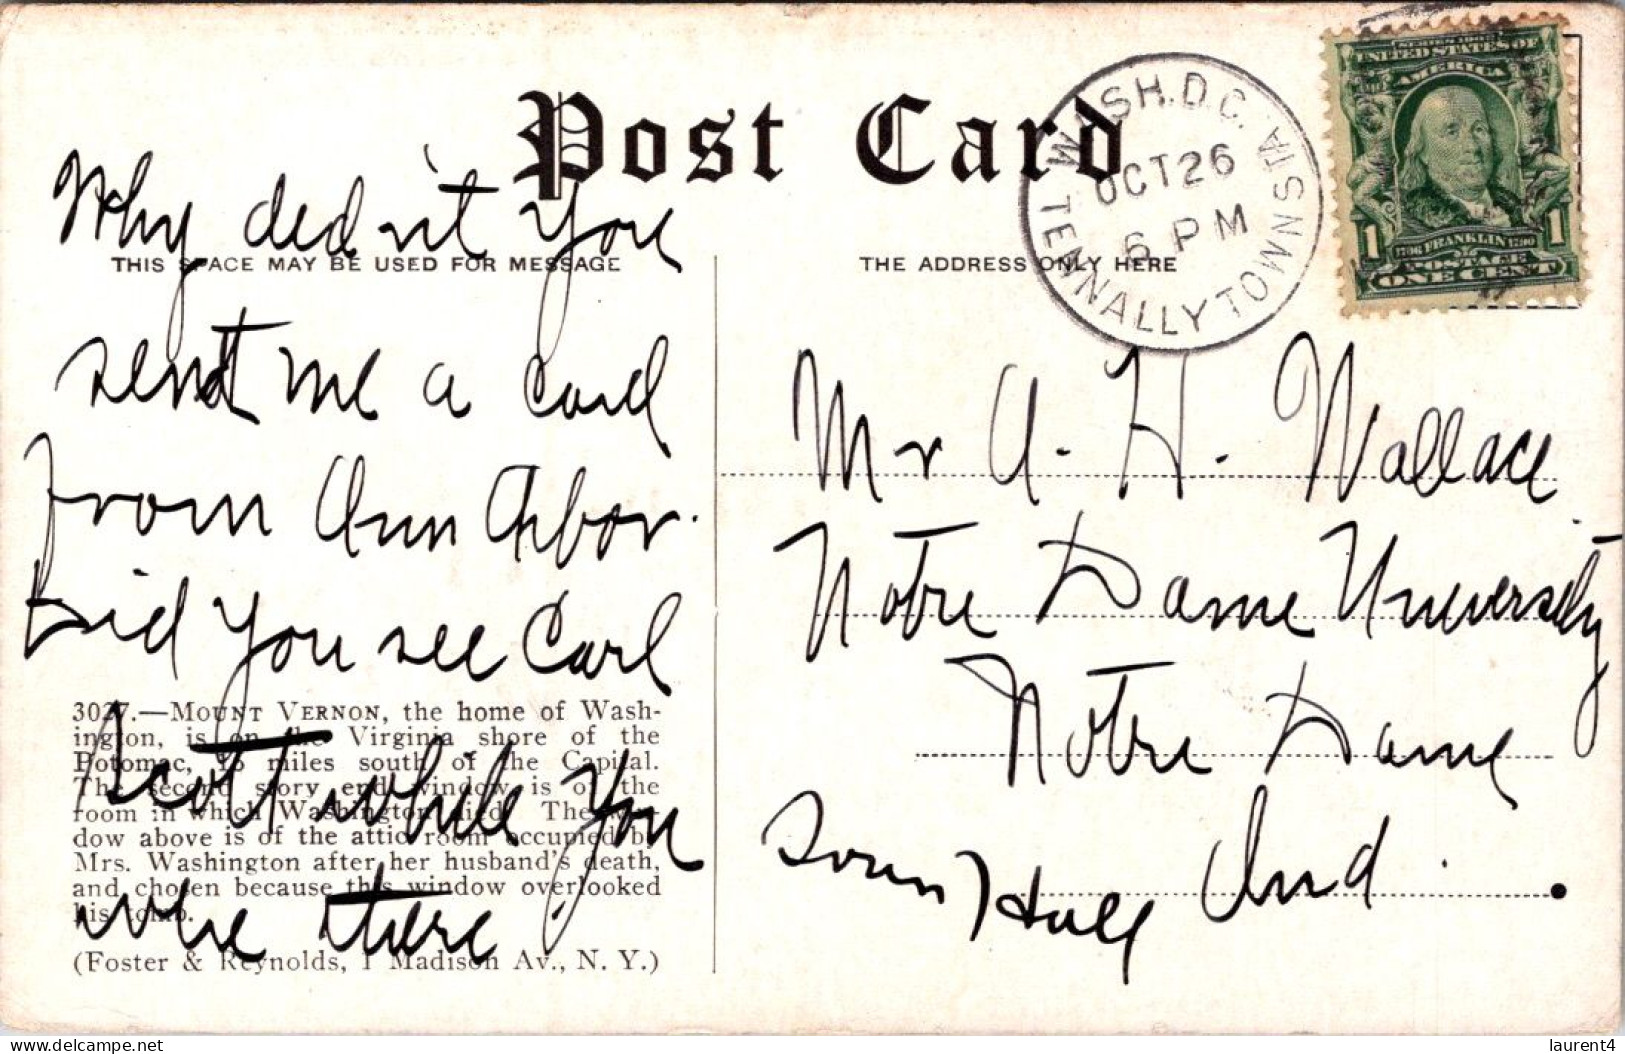 Post Card
THIS SPACE MAY BE USED FOR MESSAGE
THE ADDRESS ONLY HERE
WASH. D.C.
OCT 26
6 PM
TENNALLYTOWN STA.
UNITED STATES OF
AMERICA
1706 FRANKLIN 1790
POSTAGE
1 ONE CENT 1
Why didn't you
sent me a card
from Ann Arbor.
Did you see Carl
Scott while you
were there?
3027.—MOUNT VERNON, the home of Wash-
ington, is on the Virginia shore of the
Potomac, 16 miles south of the Capital.
The second story end window is of the
room in which Washington died. The win-
dow above is of the attic room occupied by
Mrs. Washington after her husband's death,
and chosen because this window overlooked
his tomb.
(Foster & Reynolds, 1 Madison Av., N. Y.)
Mr A. H. Wallace
Notre Dame University
Notre Dame
Sorin Hall Ind.
laurent4